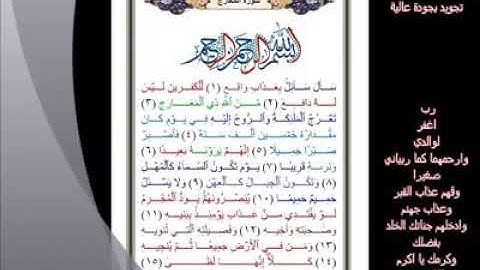 تجويد بجودة عالية
سورة المعارج
بسم الله الرحمن الرحيم
سَأَلَ سَآئِلٌ بِعَذَابٍ وَاقِعٍ (١) لِّلْكَٰفِرِينَ لَيْسَ
لَهُۥ دَافِعٌ (٢) مِّنَ ٱللَّهِ ذِي ٱلْمَعَارِجِ (٣)
تَعْرُجُ ٱلْمَلَٰٓئِكَةُ وَٱلرُّوحُ إِلَيْهِ فِي يَوْمٍ كَانَ
مِقْدَارُهُۥ خَمْسِينَ أَلْفَ سَنَةٍ (٤) فَٱصْبِرْ
صَبْرًا جَمِيلًا (٥) إِنَّهُمْ يَرَوْنَهُۥ بَعِيدًا (٦)
وَنَرَىٰهُ قَرِيبًا (٧) يَوْمَ تَكُونُ ٱلسَّمَآءُ كَٱلْمُهْلِ
(٨) وَتَكُونُ ٱلْجِبَالُ كَٱلْعِهْنِ (٩) وَلَا يَسْـَٔلُ
حَمِيمٌ حَمِيمًا (١٠) يُبَصَّرُونَهُمْ يَوَدُّ ٱلْمُجْرِمُ
لَوْ يَفْتَدِي مِنْ عَذَابِ يَوْمِئِذٍۭ بِبَنِيهِ (١١)
وَصَٰحِبَتِهِۦ وَأَخِيهِ (١٢) وَفَصِيلَتِهِ ٱلَّتِي تُـْٔوِيهِ
(١٣) وَمَن فِي ٱلْأَرْضِ جَمِيعًا ثُمَّ يُنجِيهِ
(١٤) كَلَّآ إِنَّهَا لَظَىٰ (١٥)
رب
اغفر
لوالدي
وارحمهما كما ربياني
صغيرا
وقهم عذاب القبر
وعذاب جهنم
وادخلهم جناتك الخلد
بفضلك
وكرمك يا أكرم